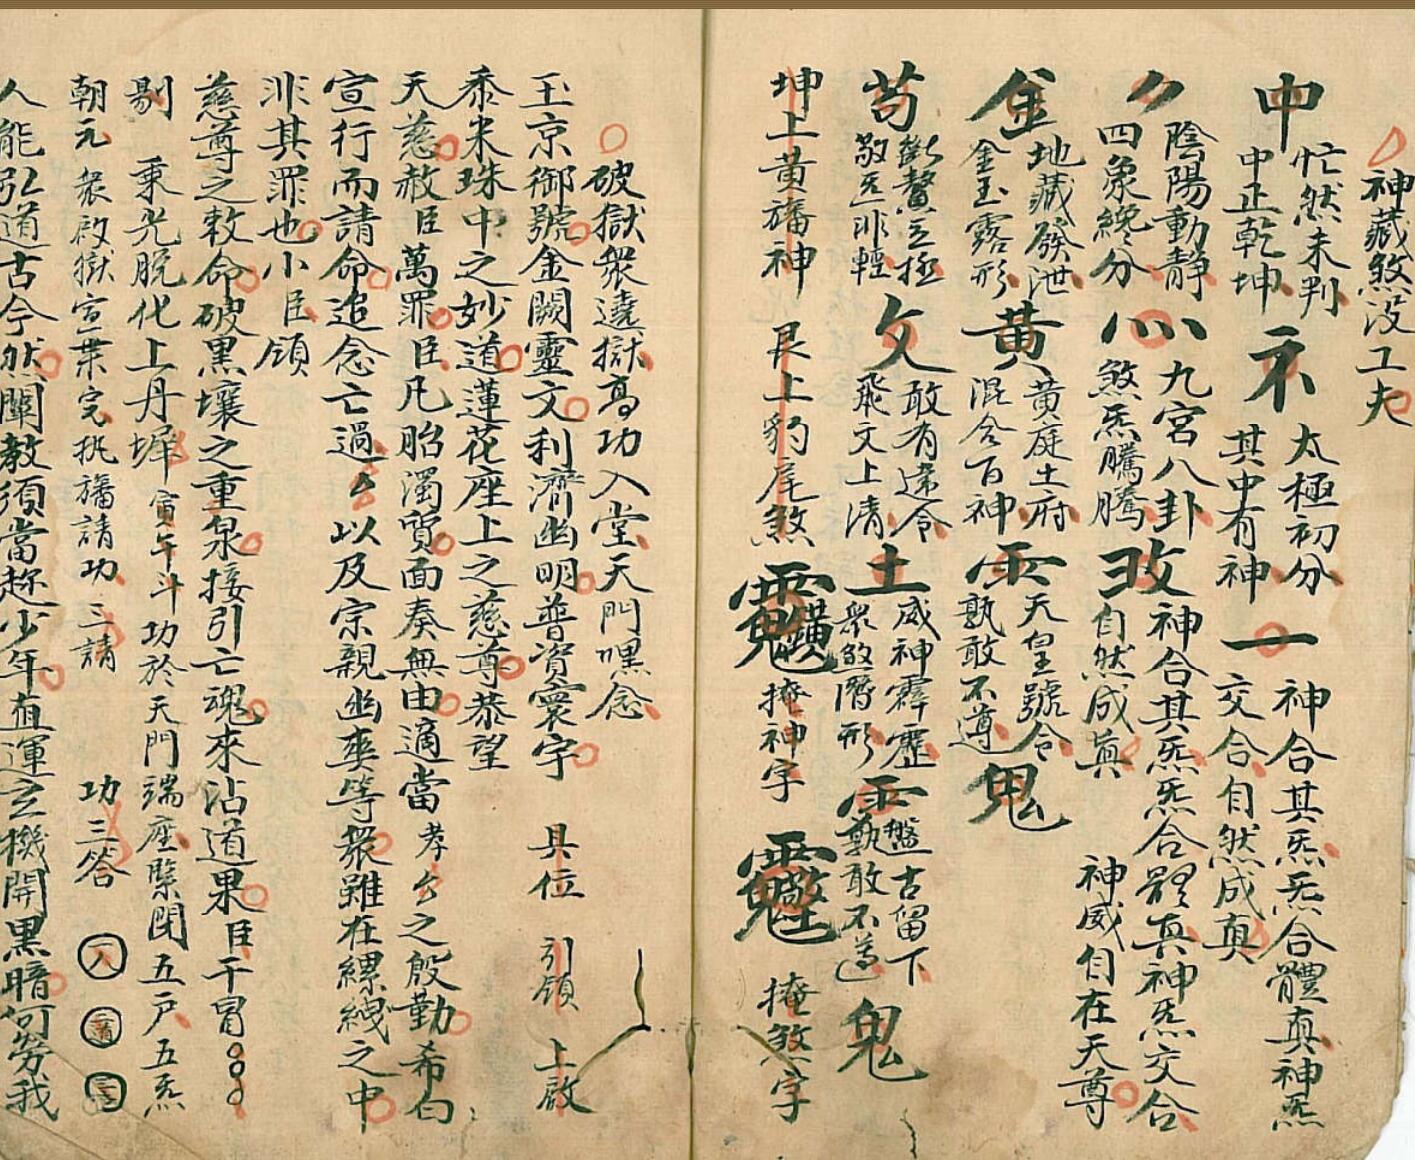 神藏煞没工夫
中 忙然未判 中正乾坤 𥘅 太極初分 其中有神 一 神合其炁炁合體真神炁 交合自然成真
𠂊 陰陽動靜 四象纔分 心 九宮八卦 煞炁騰騰 攻 神合其炁炁合體真神炁交合 自然成真 神威自在天尊
金 地藏發泄 金玉露形 黄 黄庭土府 混合百神 雨 天皇號令 孰敢不遵 鬼
苟 斷鰲立極 敬匪非輕 文 敢有違令 飛文上清 土 威神霹靂 衆煞潛形 雨 盤古留下 孰敢不遵 鬼
坤上黄旛神 艮上豹尾煞 掩神字 掩煞字
破獄衆遶獄高功入堂天門嘿念
玉京御號金闕靈文利濟幽明普資寰宇 具位 引領 上啟
黍米珠中之妙道蓮花座上之慈尊恭望
天慈赦臣萬罪臣凡胎濁質面奏無由適當孝㕕之殷勤希白
宣行而請命追念亡過㕕以及宗親幽爽等衆雖在縲絏之中
非其罪也小臣領
慈尊之敕命破黑壤之重泉接引亡魂來沾道果臣干冒
剔 秉光脱化上丹墀 寅午斗功於天門端座緊閉五戶五炁
朝元 衆啟獄宣葉完挑旛請功 三請 功三答 入
人能弘道古今然闡教須當趂少年直運玄機開黑暗何勞我